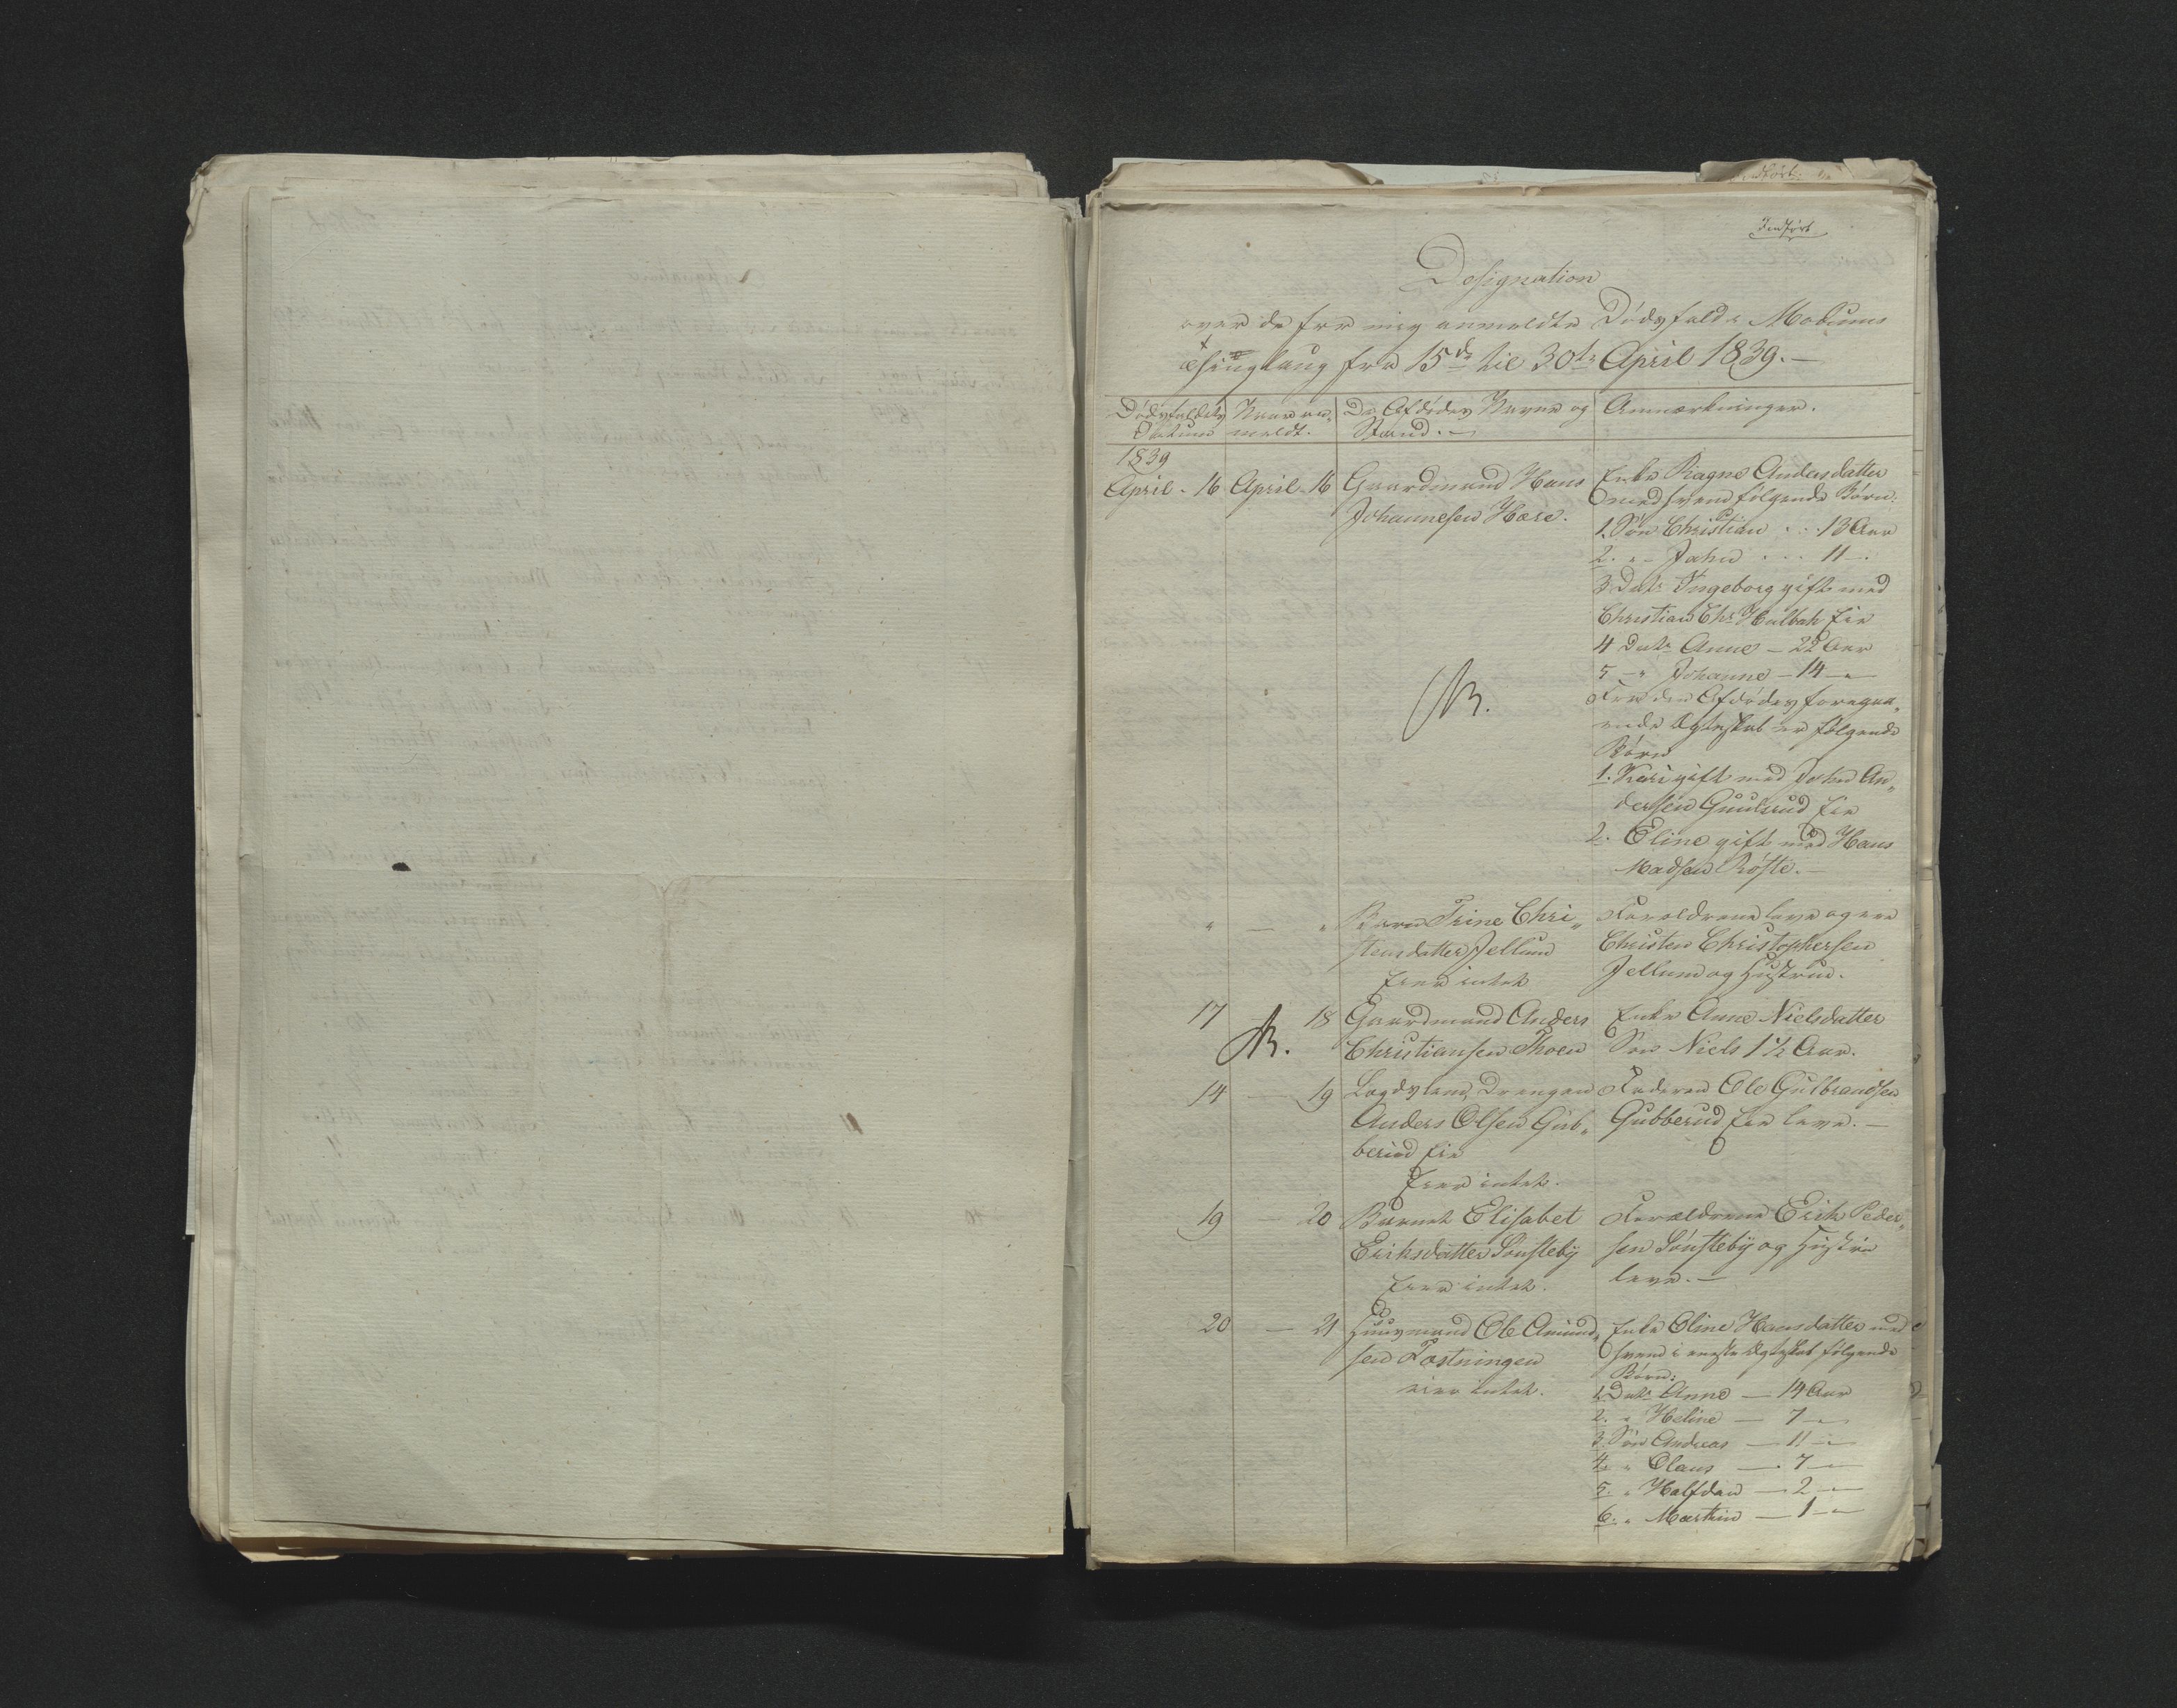 Indført
Designation
over de for mig anmeldte Dødsfald i Modums
Thinglaug fra 15de til 30te April 1839.—
Dødsfaldets Datum
Naar an„meldt.
De Afdødes Navne og Stand.—
Anmærkninger.
1839
April - 16 April - 16 Gaardmand Hans
Johannesen Hære.
Enke Ragne Andersdatter
med hvem følgende Børn:
1. Søn Christian . . . 13 Aar
2. „ - Johan . . . 11 -„
3 Datr Ingeborg gift med
Christian Chr. Hulbak Eie
4 Datr Anne — 22 Aar
5 -„ Johanne — 14 -„
Fra den Afdødes foregaa„
ende Ægteskab er følgende
Børn
1. Kari gift med John An„
dersen Guulsrud Eie
2. Eline gift med Hans
Madsen Røste.—
„ — „ Barn Trine Chri„
stensdatter Jellum
Eier intet
Forældrene leve og ere
Christen Christophersen
Jellum og Hustrue.
17 — 18 Gaardmand Anders
Christiansen Thoen
Enke Anne Nielsdatter
Søn Niels 1 1/2 Aar.
14 — 19 Lægdslem Drengen
Anders Olsen Gub„
berud Eie
Eier intet.
Faderen Ole Gulbrandsen
Gubberud Eie leve.—
19 — 20 Barnet Elisabet
Eriksdatter Sønsteby
Eier intet.
Forældrene Erik Peder„
sen Sønsteby og Hustru
leve.—
20 — 21 Huusmand Ole Amund„
sen Tostningen
eier intet.
Enke Oline Hansdatter med
hvem i eneste Ægteskab følgende
Børn:
1. Datr Anne — 14 Aar
2. „ Heline — 7 -„
3. Søn Andreas — 11 -„
4. „ Olaus — 7 -„
5. „ Halfdan — 2 -„
6. „ Martin — 1 -„